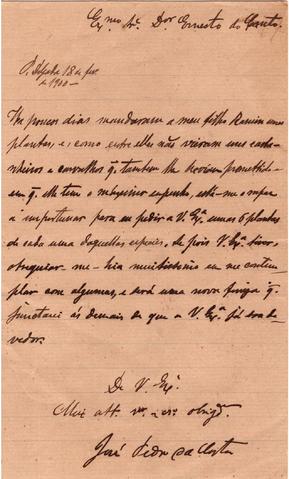 Exmo Sr. Dor Ernesto do Canto.
P. Delgada 18 de
de 1900 —
Ha poucos dias mandaram a meu filho Ramiro umas
plantas, e, como entre ellas não vieram uns casta-
nheiros e carvalhos q. tambem lhe haviam promettido
em q. elle tem o maximo empenho, está-me
a importunar para eu pedir a V. Exa umas 6 plantas
de cada uma daquellas especies, de pois V. Exa
obsequiar-me-hia muitissimo em me contem-
plar com algumas, e será uma nova fineza q.
juntarei ás demais de que a V. Exa já sou de-
vedor.
De V. Exa
Mui att. vor e cr. obrigo.
José Pedro da Costa